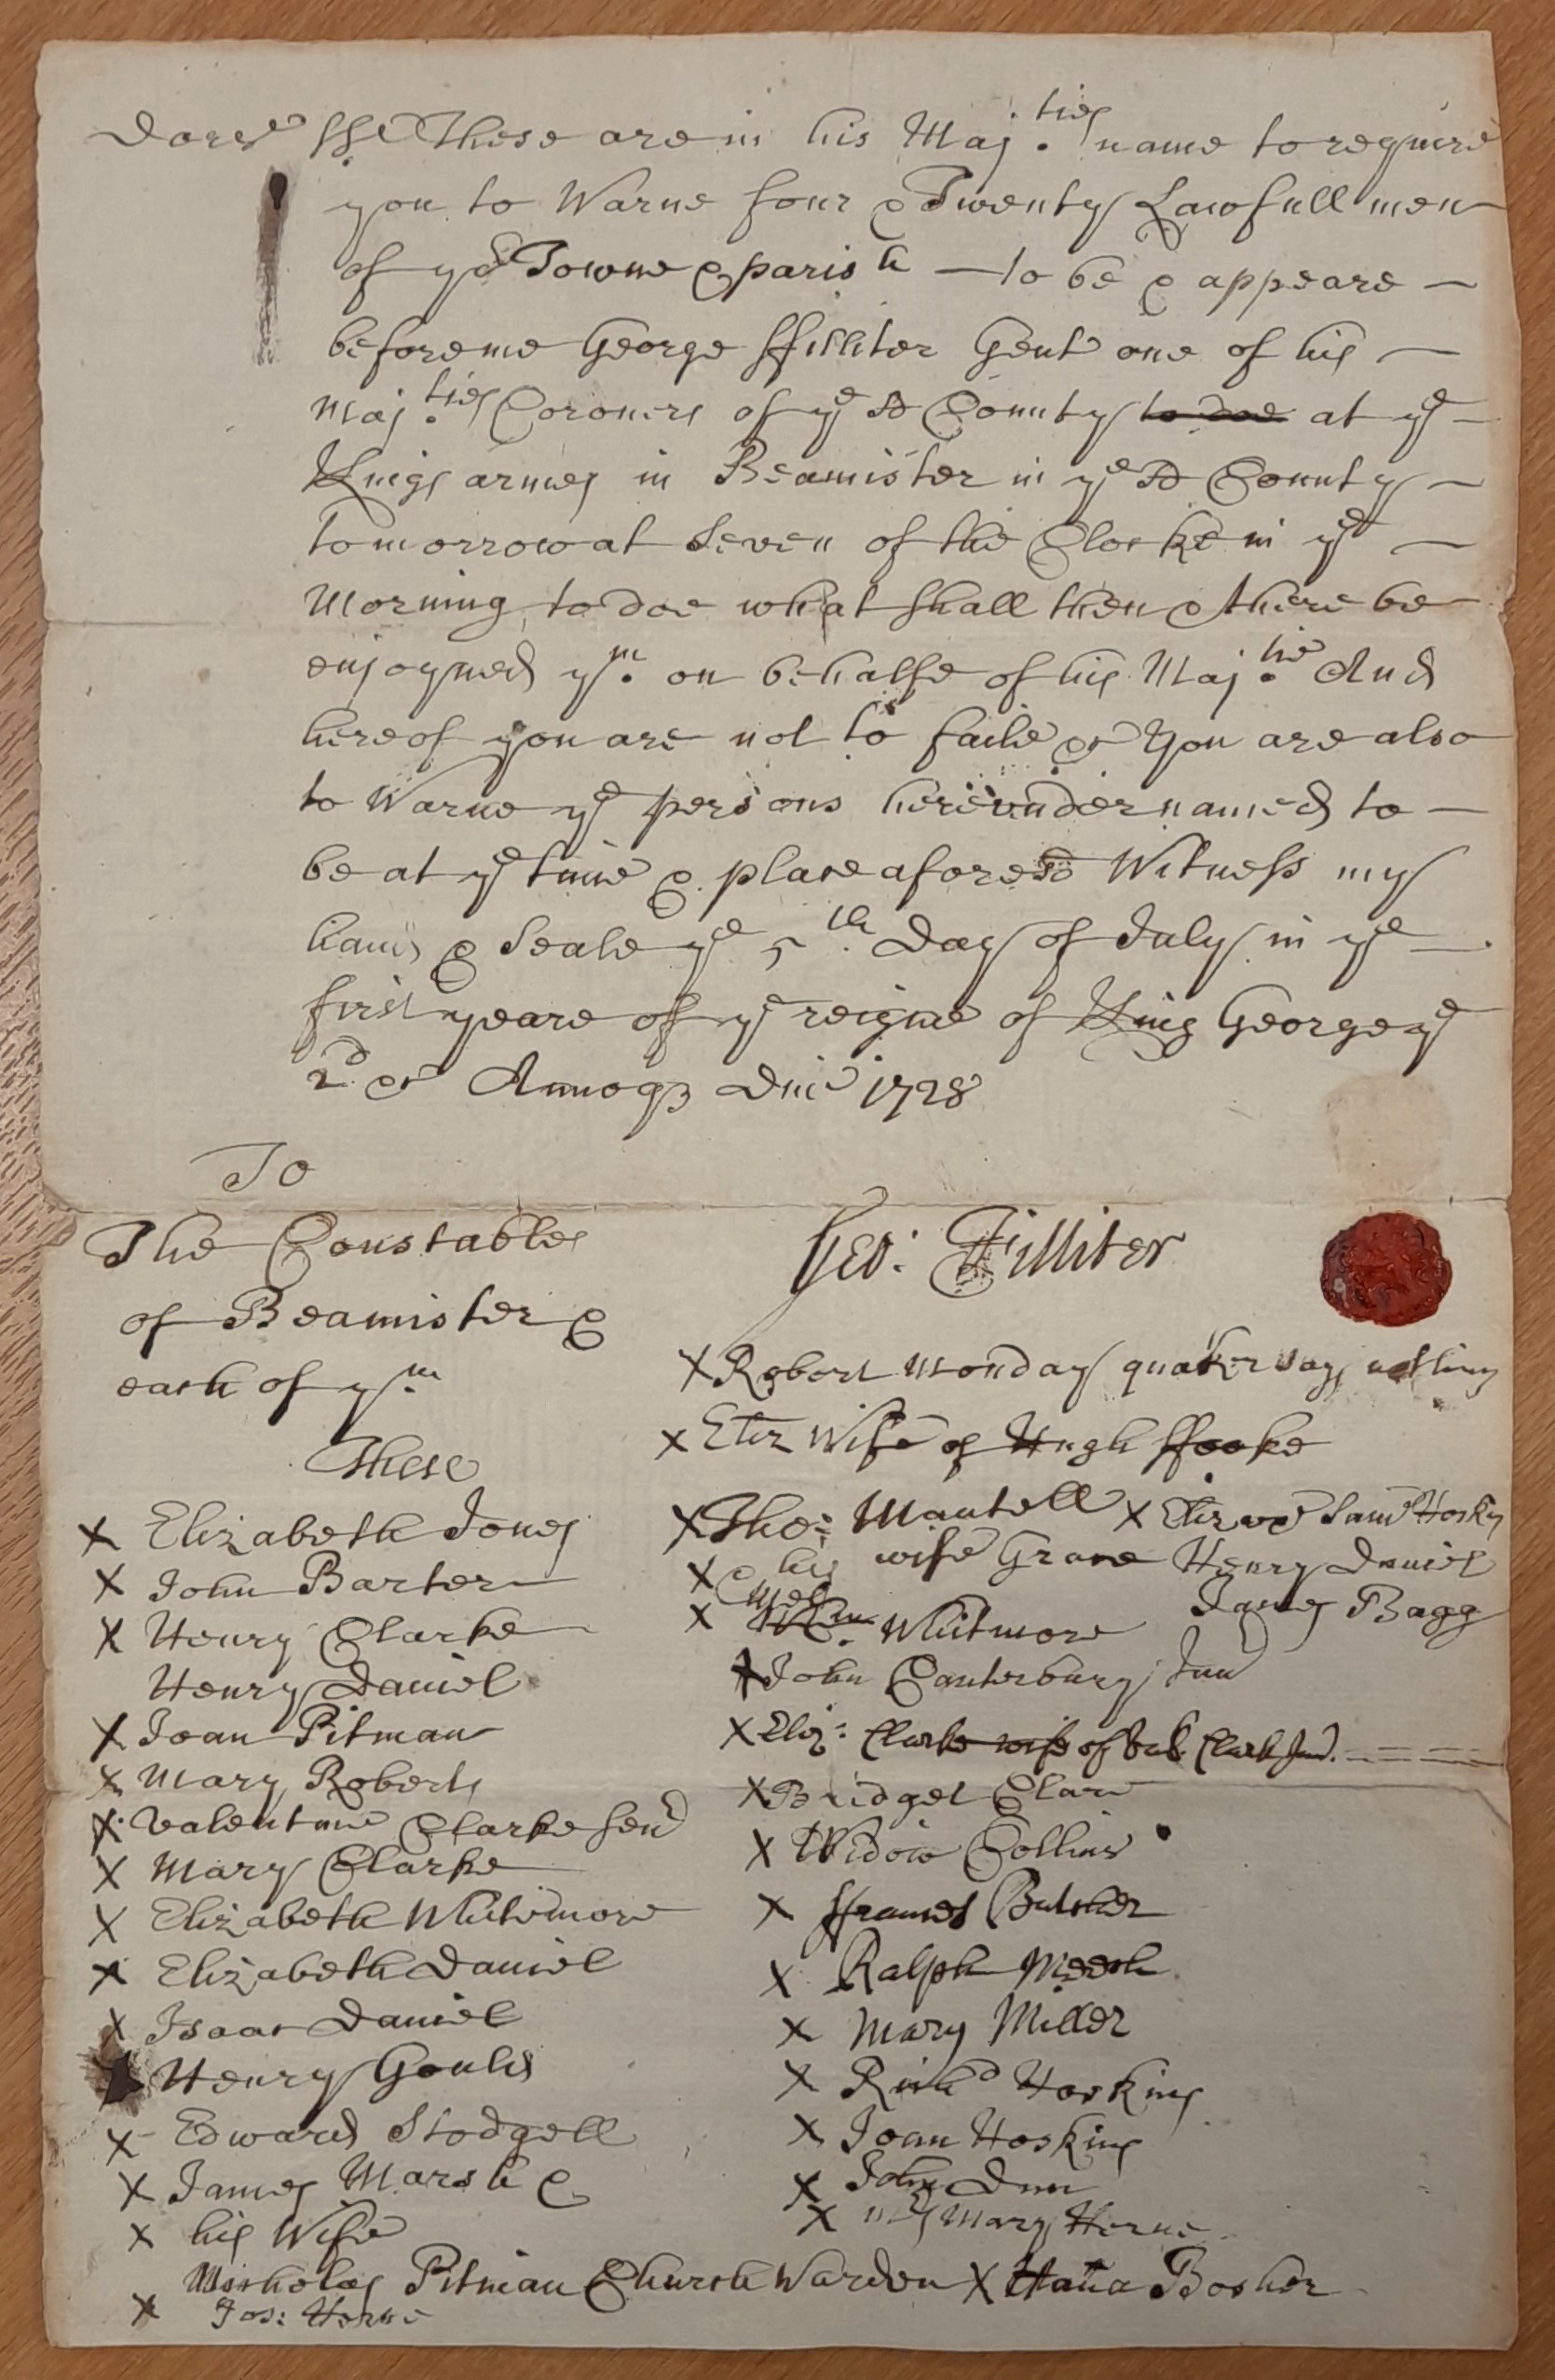 Dorst ss These are in his Maj.ties name to require
you to Warne four & Twenty Lawfull men
of yor Towne & parish — to be & appeare —
before me George ffilliter Gent one of his —
Maj.ties Coroners of ye sd County to doe at ye —
Kings armes in Beamister in ye sd County —
tomorrow at Seven of the Clocke in ye —
Morning to doe what shall then & there be
enjoyned ym. on behalfe of his Maj.tie And
hereof you are not to faile &c You are also
to Warne ye persons hereunder named to —
be at ye time & place aforesd Witness my
hand & Seale ye 5th. Day of July in ye —
first yeare of ye reigne of King George ye
2d. &c Annoq3 Dni 1728
To
The Constables
of Beamister &
each of ym.
These
Geo: Filliter
X Elizabeth Jones
X John Barter
X Henry Clarke
Henry Daniel
X Joan Pitman
X Mary Roberts
X Valentine Clarke Senr
X Mary Clarke
X Elizabeth Whitemore
X Elizabeth Daniel
X Isaac Daniel
X Henry Gould
X Edward Stodgell
X James Marsh &
X his Wife
Nicholas Pitman Church Warden X Hana Bosher
X Jos: Horne
X Robert Monday quaker says nothing
X Eliz Wife of Hugh ffooke
X Tho: Mantell X Eliz Sam Hoskins
X & his wife Grace Henry Daniel
X Whitmore James Bagg
X John Canterbury Junr
X Eliz: Clarke wife of Val. Clark Junr.
X Bridget Clare
X Widow Collins
X ffrances Butcher
X Ralph Meech
X Mary Miller
X Richd Hoskins
X Joan Hoskins
X John Dun
X Mary Horne